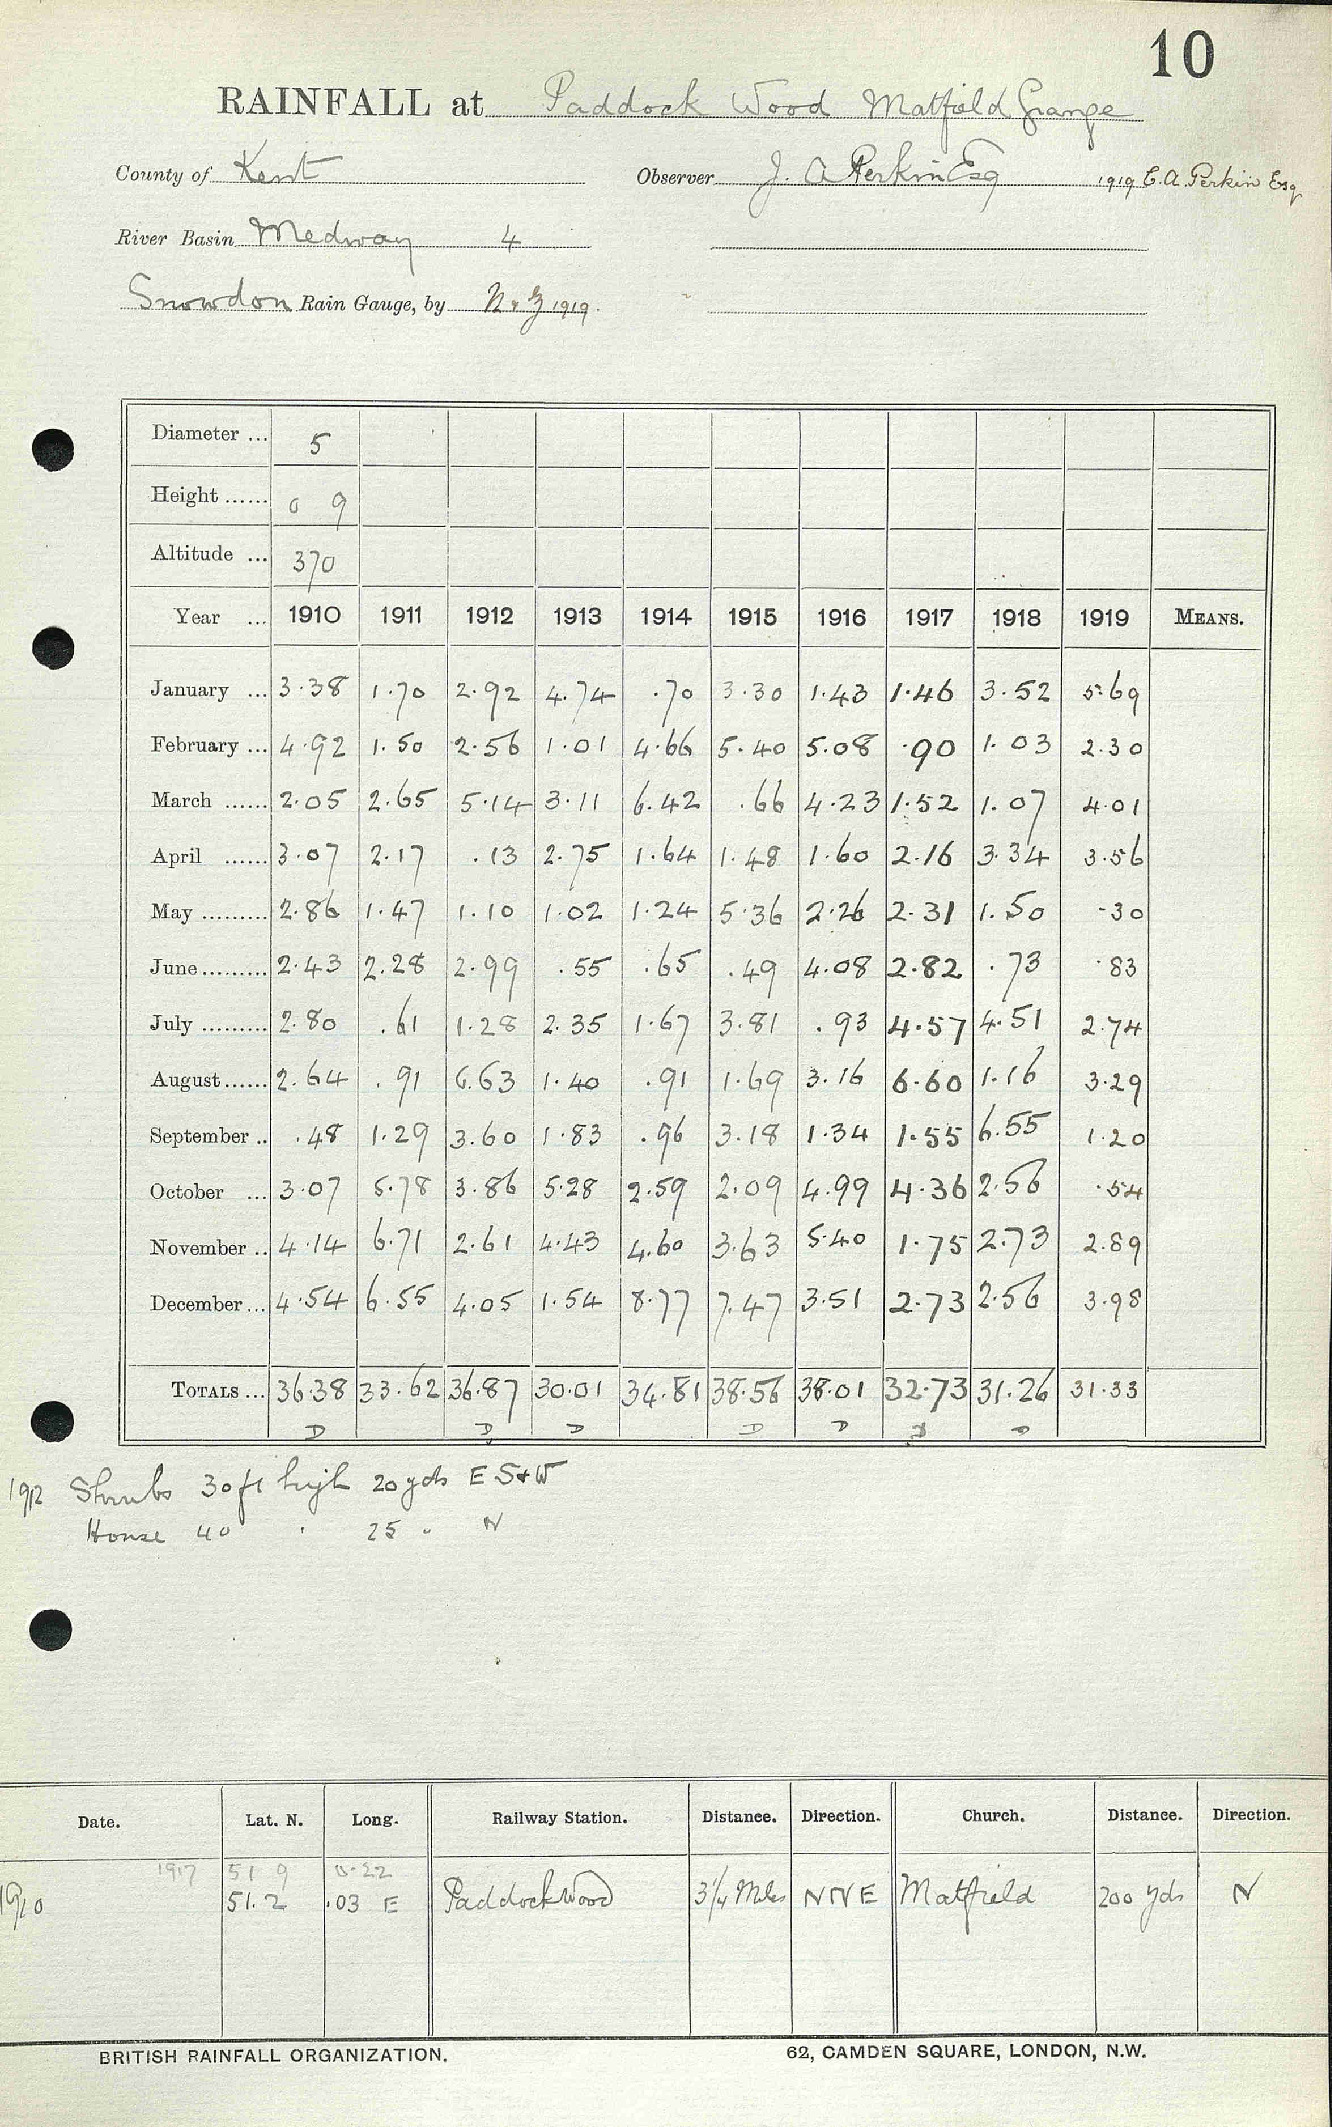 10
RAINFALL at Paddock Wood Matfield Grange
County of Kent Observer J. A Perkin Esq 1919 E.A. Perkin Esq
River Basin Medway 4
Snowdon Rain Gauge, by N & Z 1919.
Diameter ... 5
Height ...... 0 9
Altitude ... 370
Year ... 1910 1911 1912 1913 1914 1915 1916 1917 1918 1919 MEANS.
January ... 3.38 1.70 2.92 4.74 .70 3.30 1.43 1.46 3.52 5.69
February ... 4.92 1.50 2.56 1.01 4.66 5.40 5.08 .90 1.03 2.30
March ...... 2.05 2.65 5.14 3.11 6.42 .66 4.23 1.52 1.07 4.01
April ...... 3.07 2.17 .13 2.75 1.64 1.48 1.60 2.16 3.34 3.56
May ......... 2.86 1.47 1.10 1.02 1.24 5.36 2.26 2.31 1.50 .30
June ......... 2.43 2.28 2.99 .55 .65 .49 4.08 2.82 .73 .83
July ......... 2.80 .61 1.28 2.35 1.67 3.81 .93 4.57 4.51 2.74
August ...... 2.64 .91 6.63 1.40 .91 1.69 3.16 6.60 1.16 3.29
September .. .48 1.29 3.60 1.83 .96 3.18 1.34 1.55 6.55 1.20
October ... 3.07 5.78 3.86 5.28 2.59 2.09 4.99 4.36 2.56 .54
November .. 4.14 6.71 2.61 4.43 4.60 3.63 5.40 1.75 2.73 2.89
December ... 4.54 6.55 4.05 1.54 8.77 7.47 3.51 2.73 2.56 3.98
TOTALS ... 36.38 33.62 36.87 30.01 34.81 38.56 38.01 32.73 31.26 31.33
D D D D D D D
1912 Shrubs 30 ft high 20 yds E S & W
House 40 " 25 " N
Date. Lat. N. Long. Railway Station. Distance. Direction. Church. Distance. Direction.
1917 51 9 0.22
1910 51.2 .03 E Paddock Wood 3¼ Miles NNE Matfield 200 yds N
BRITISH RAINFALL ORGANIZATION. 62, CAMDEN SQUARE, LONDON, N.W.